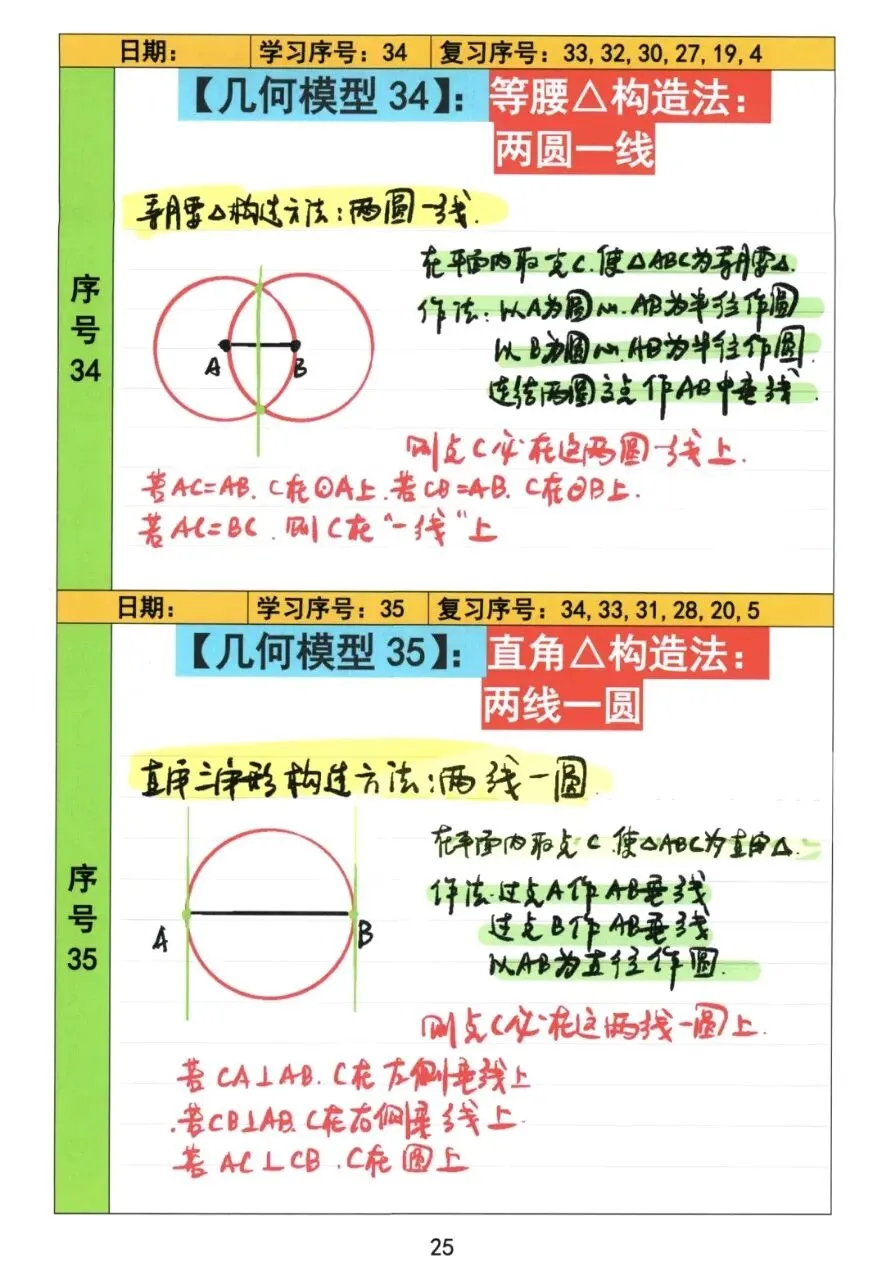 日期： 学习序号：34 复习序号：33,32,30,27,19,4
【几何模型 34】：等腰△构造法：
两圆一线
等腰△构造方法：两圆一线.
在平面内取点C.使△ABC为等腰△.
作法：以A为圆心.AB为半径作圆
以B为圆心.AB为半径作圆.
连结两圆交点作AB中垂线.
A
B
则点C必在这两圆一线上.
若AC=AB.C在⊙A上.若CB=AB.C在⊙B上.
若AC=BC.则C在“一线”上
序号34
日期： 学习序号：35 复习序号：34,33,31,28,20,5
【几何模型 35】：直角△构造法：
两线一圆
直角三角形构造方法：两线一圆.
在平面内取点C.使△ABC为直角△.
作法.过点A作AB垂线
过点B作AB垂线
以AB为直径作圆.
A
B
则点C必在这两线一圆上.
若CA⊥AB.C在左侧垂线上
.若CB⊥AB.C在右侧垂线上.
若AC⊥CB.C在圆上
序号35
25